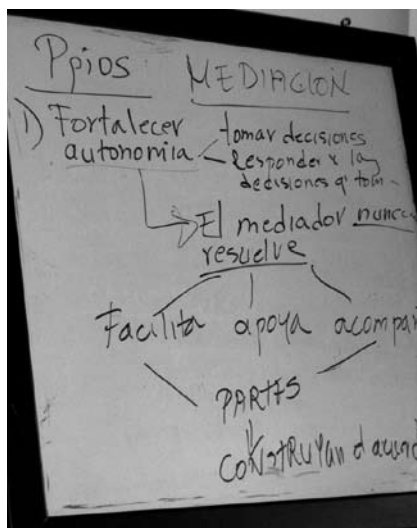 Ppios MEDIACION
1) Fortalecer
autonomia
tomar decisiones
Responder x las
decisiones q' tom
El mediador nunca
resuelve
Facilita apoya acompañ
PARTES
CONSTRUYan el acuerd